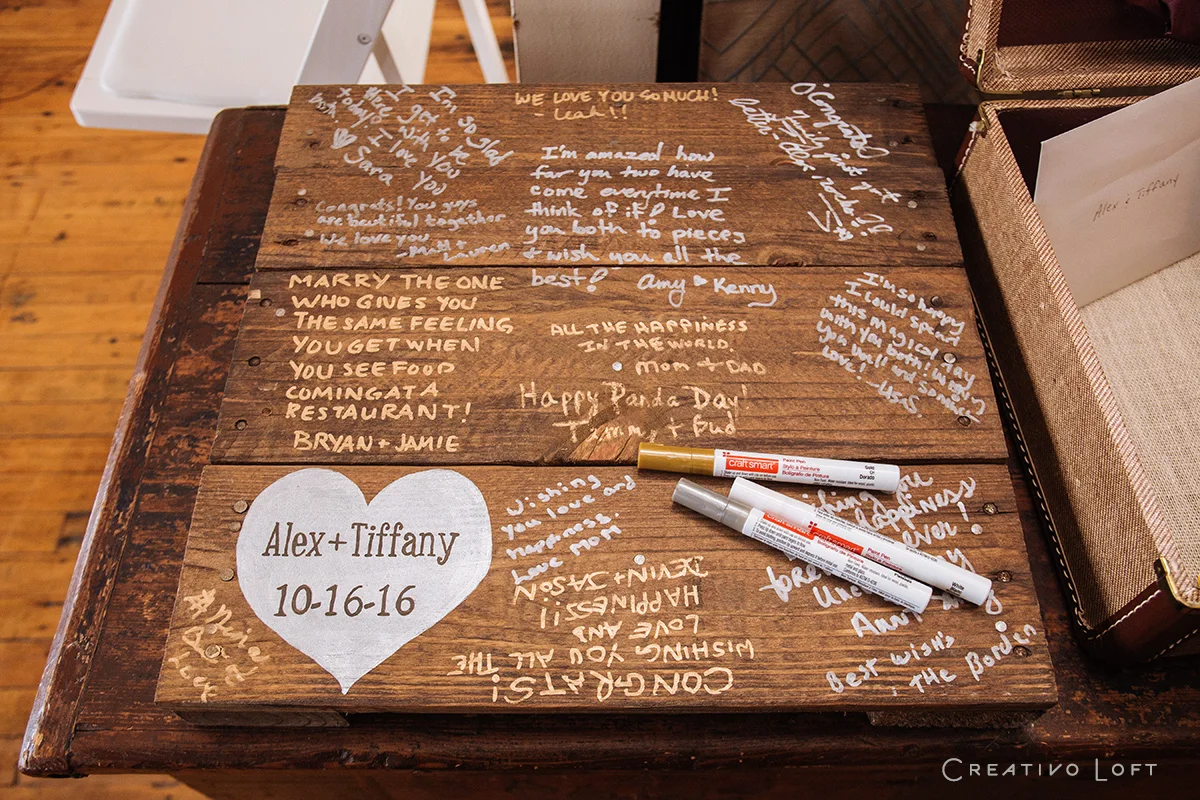 I'm so glad
that I got to be
today with you
both. I love you
Sara
WE LOVE YOU SO MUCH!
- Leah!!
Congrats!
I'm amazed how
far you two have
come everytime I
think of it! Love
you both to pieces
+ wish you all the
best! Amy & Kenny
Congrats! You guys
are beautiful together
We love you
- Matt +
MARRY THE ONE
WHO GIVES YOU
THE SAME FEELING
YOU GET WHEN
YOU SEE FOOD
COMING AT A
RESTAURANT!
BRYAN + JAMIE
ALL THE HAPPINESS
IN THE WORLD.
MOM + DAD
Happy Panda Day!
Timmy + Bud
I'm so happy
I could spend
this magical day
with you both!
Love!
Alex+Tiffany
10-16-16
wishing
you love and
happiness.
Love Mom
CONGRATS!
WISHING YOU ALL THE
LOVE AND
HAPPINESS!!
DEVIN + JASON
you
happiness
ever!
Best wish's
, the Borden
craft smart
Paint Pen
Gold
Or
Dorado
craft smart
craft smart
Paint Pen
White
Alex & Tiffany
CREATIVO LOFT